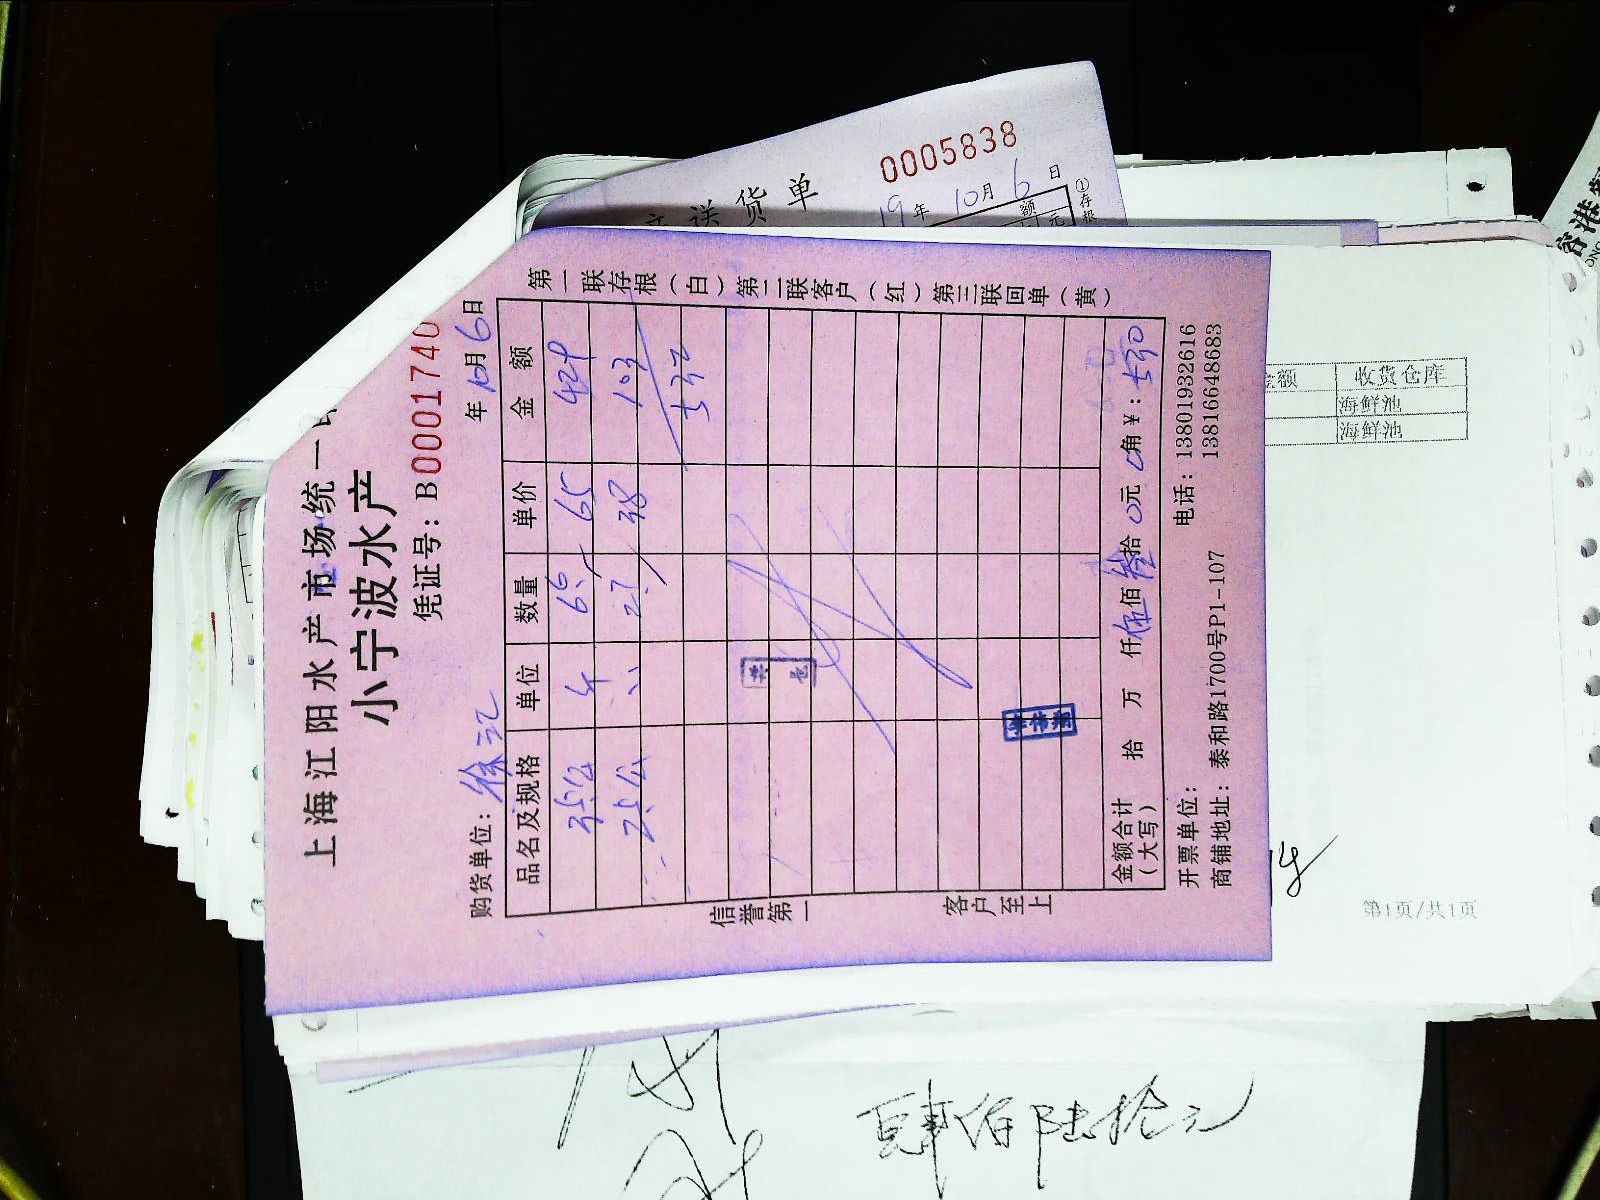 0005838
送货单
19年10月6日
①存根
额
元
上海江阳水产市场统一
小宁波水产
凭证号：B00017740
购货单位：徐汇
年10月6日
品名及规格 单位 数量 单价 金额
35公 斤 6.6 65 429
25公 〃 2.7 38 103
532
金额合计（大写） 拾 万 仟 伍佰 叁拾 0元 0角 ¥：530
开票单位：
电话：13801932616
13816648683
商铺地址：泰和路1700号P1-107
第一联存根（白）第二联客户（红）第三联回单（黄）
信誉第一
客户至上
金额 收货仓库
海鲜池
海鲜池
第1页/共1页
肆佰陆拾元